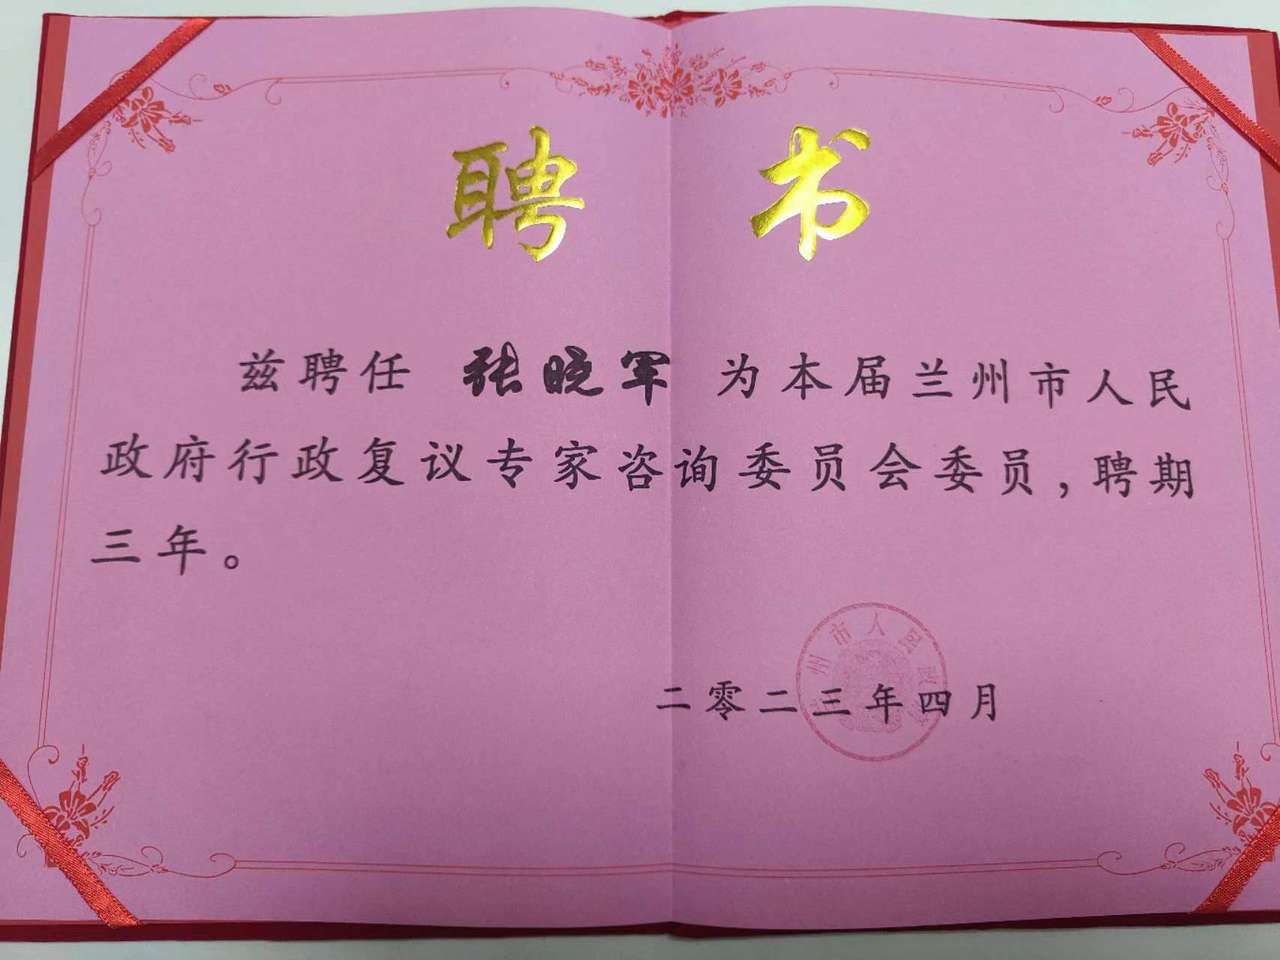 聘书
兹聘任 张晓军 为本届兰州市人民
政府行政复议专家咨询委员会委员,聘期
三年。
州市人民政
二零二三年四月